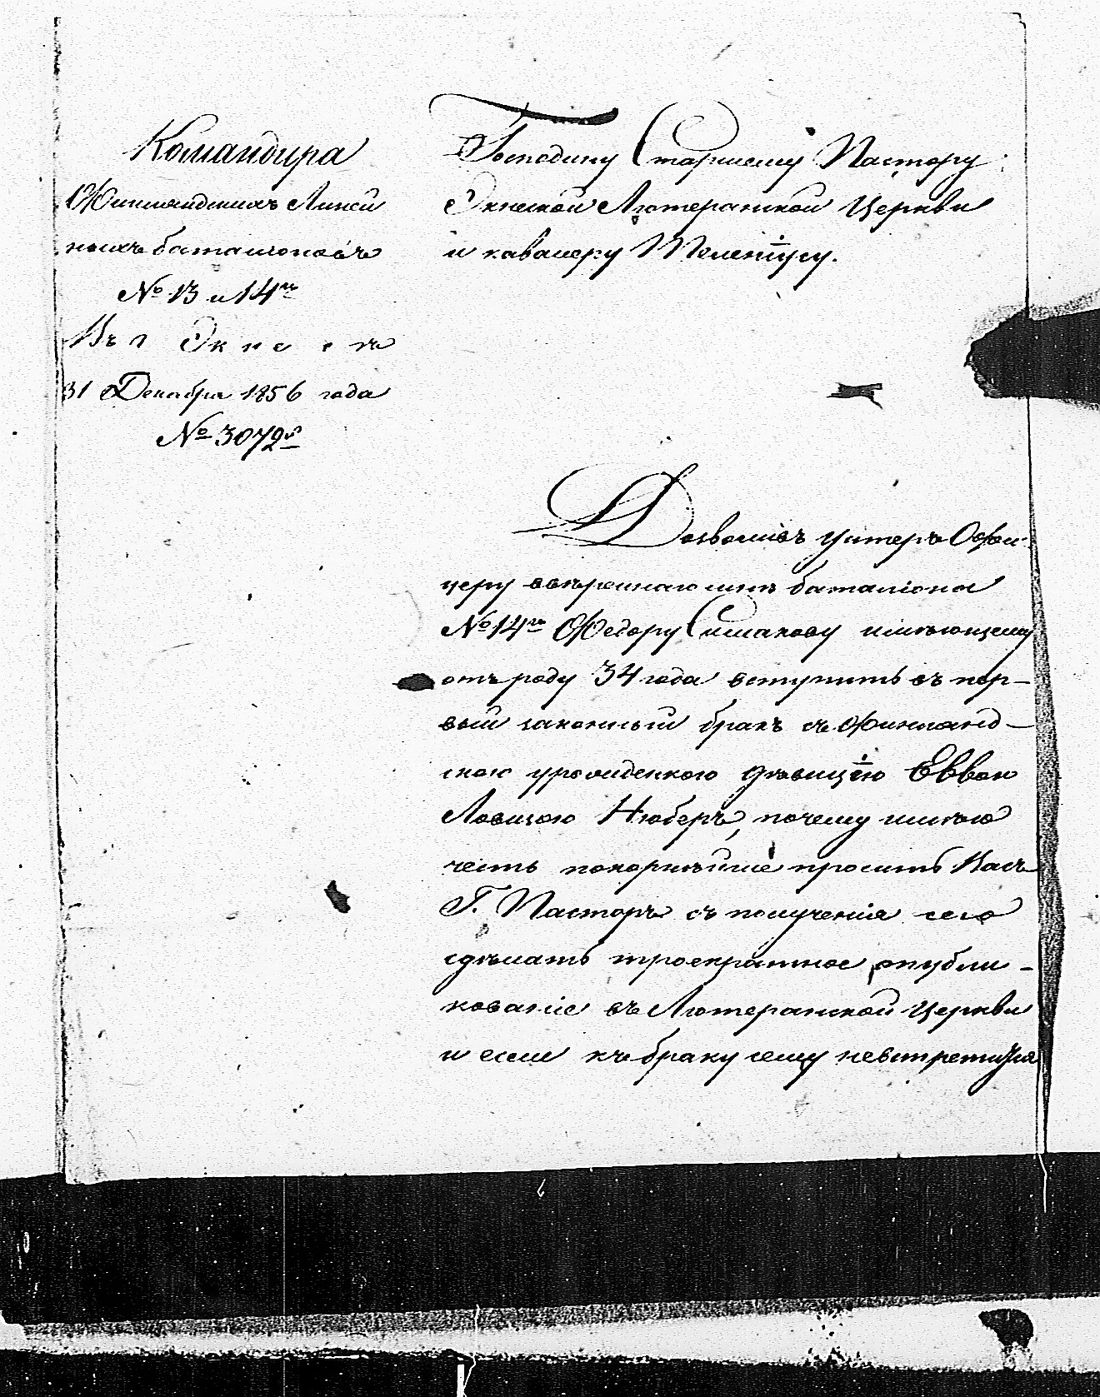 Командира
Финляндскихъ Линей
ныхъ баталіоновъ
№ 13 и 14го
Въ г Экнесъ
31 Декабря 1856 года
№ 3072й
Господину Старшему Пастору
Экнеской Лютеранской Церкви
и кавалеру
Дозволивъ унтеръ Офи-
церу ввѣреннаго мнѣ баталіона
№ 14го Федору Симакову имѣющему
отъ роду 34 года вступить въ пер-
вый законный бракъ съ финланд-
скою уроженкою дѣвицѣю Еввою
Ловисою Нюберъ, почему имѣю
честь покорнѣйше просить Васъ
Г. Пасторъ съ полученія сего
сдѣлать троекратное опубли-
кованіе въ Лютеранской Церкви
и если къ браку сему невстретится